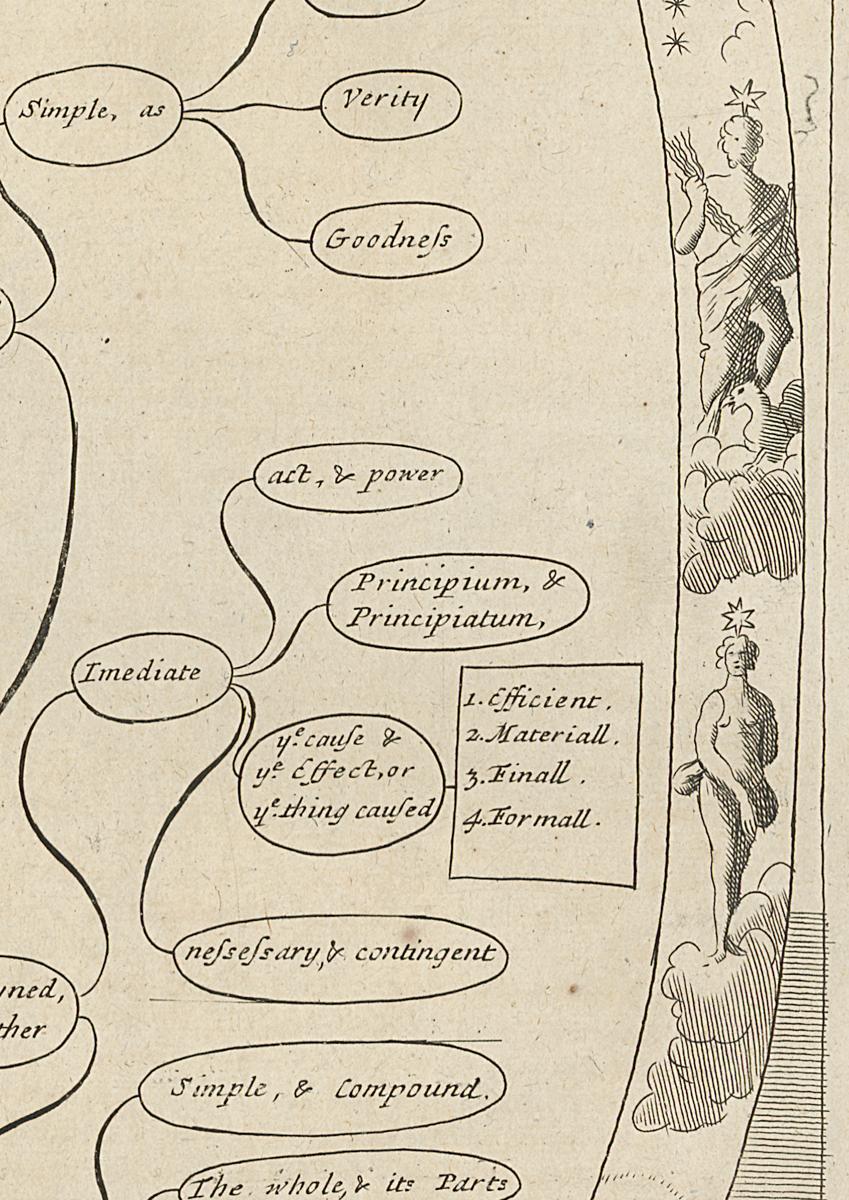 Simple, as
Verity
Goodneſs
act, & power
Principium, &
Principiatum,
Imediate
yᵉ cauſe &
yᵉ Effect, or
yᵉ thing cauſed
1. Efficient.
2. Materiall.
3. Finall.
4. Formall.
neſseſsary, & contingent
ther
Simple, & Compound.
The whole, & its Parts